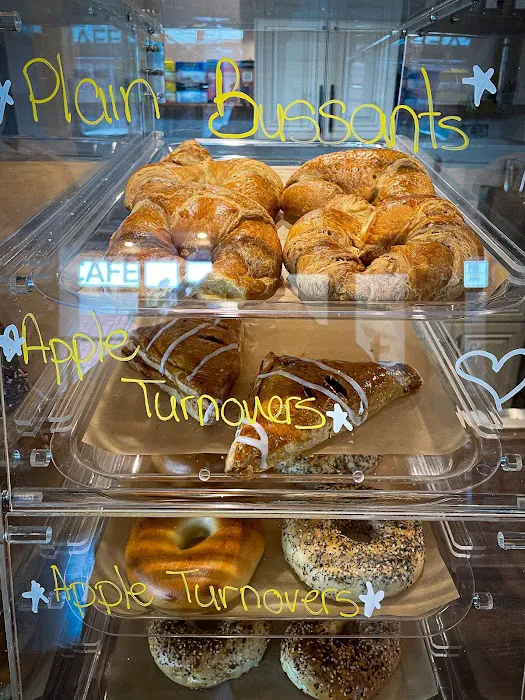 Plain Bussants
CAFE
Apple
Turnovers
Apple Turnovers